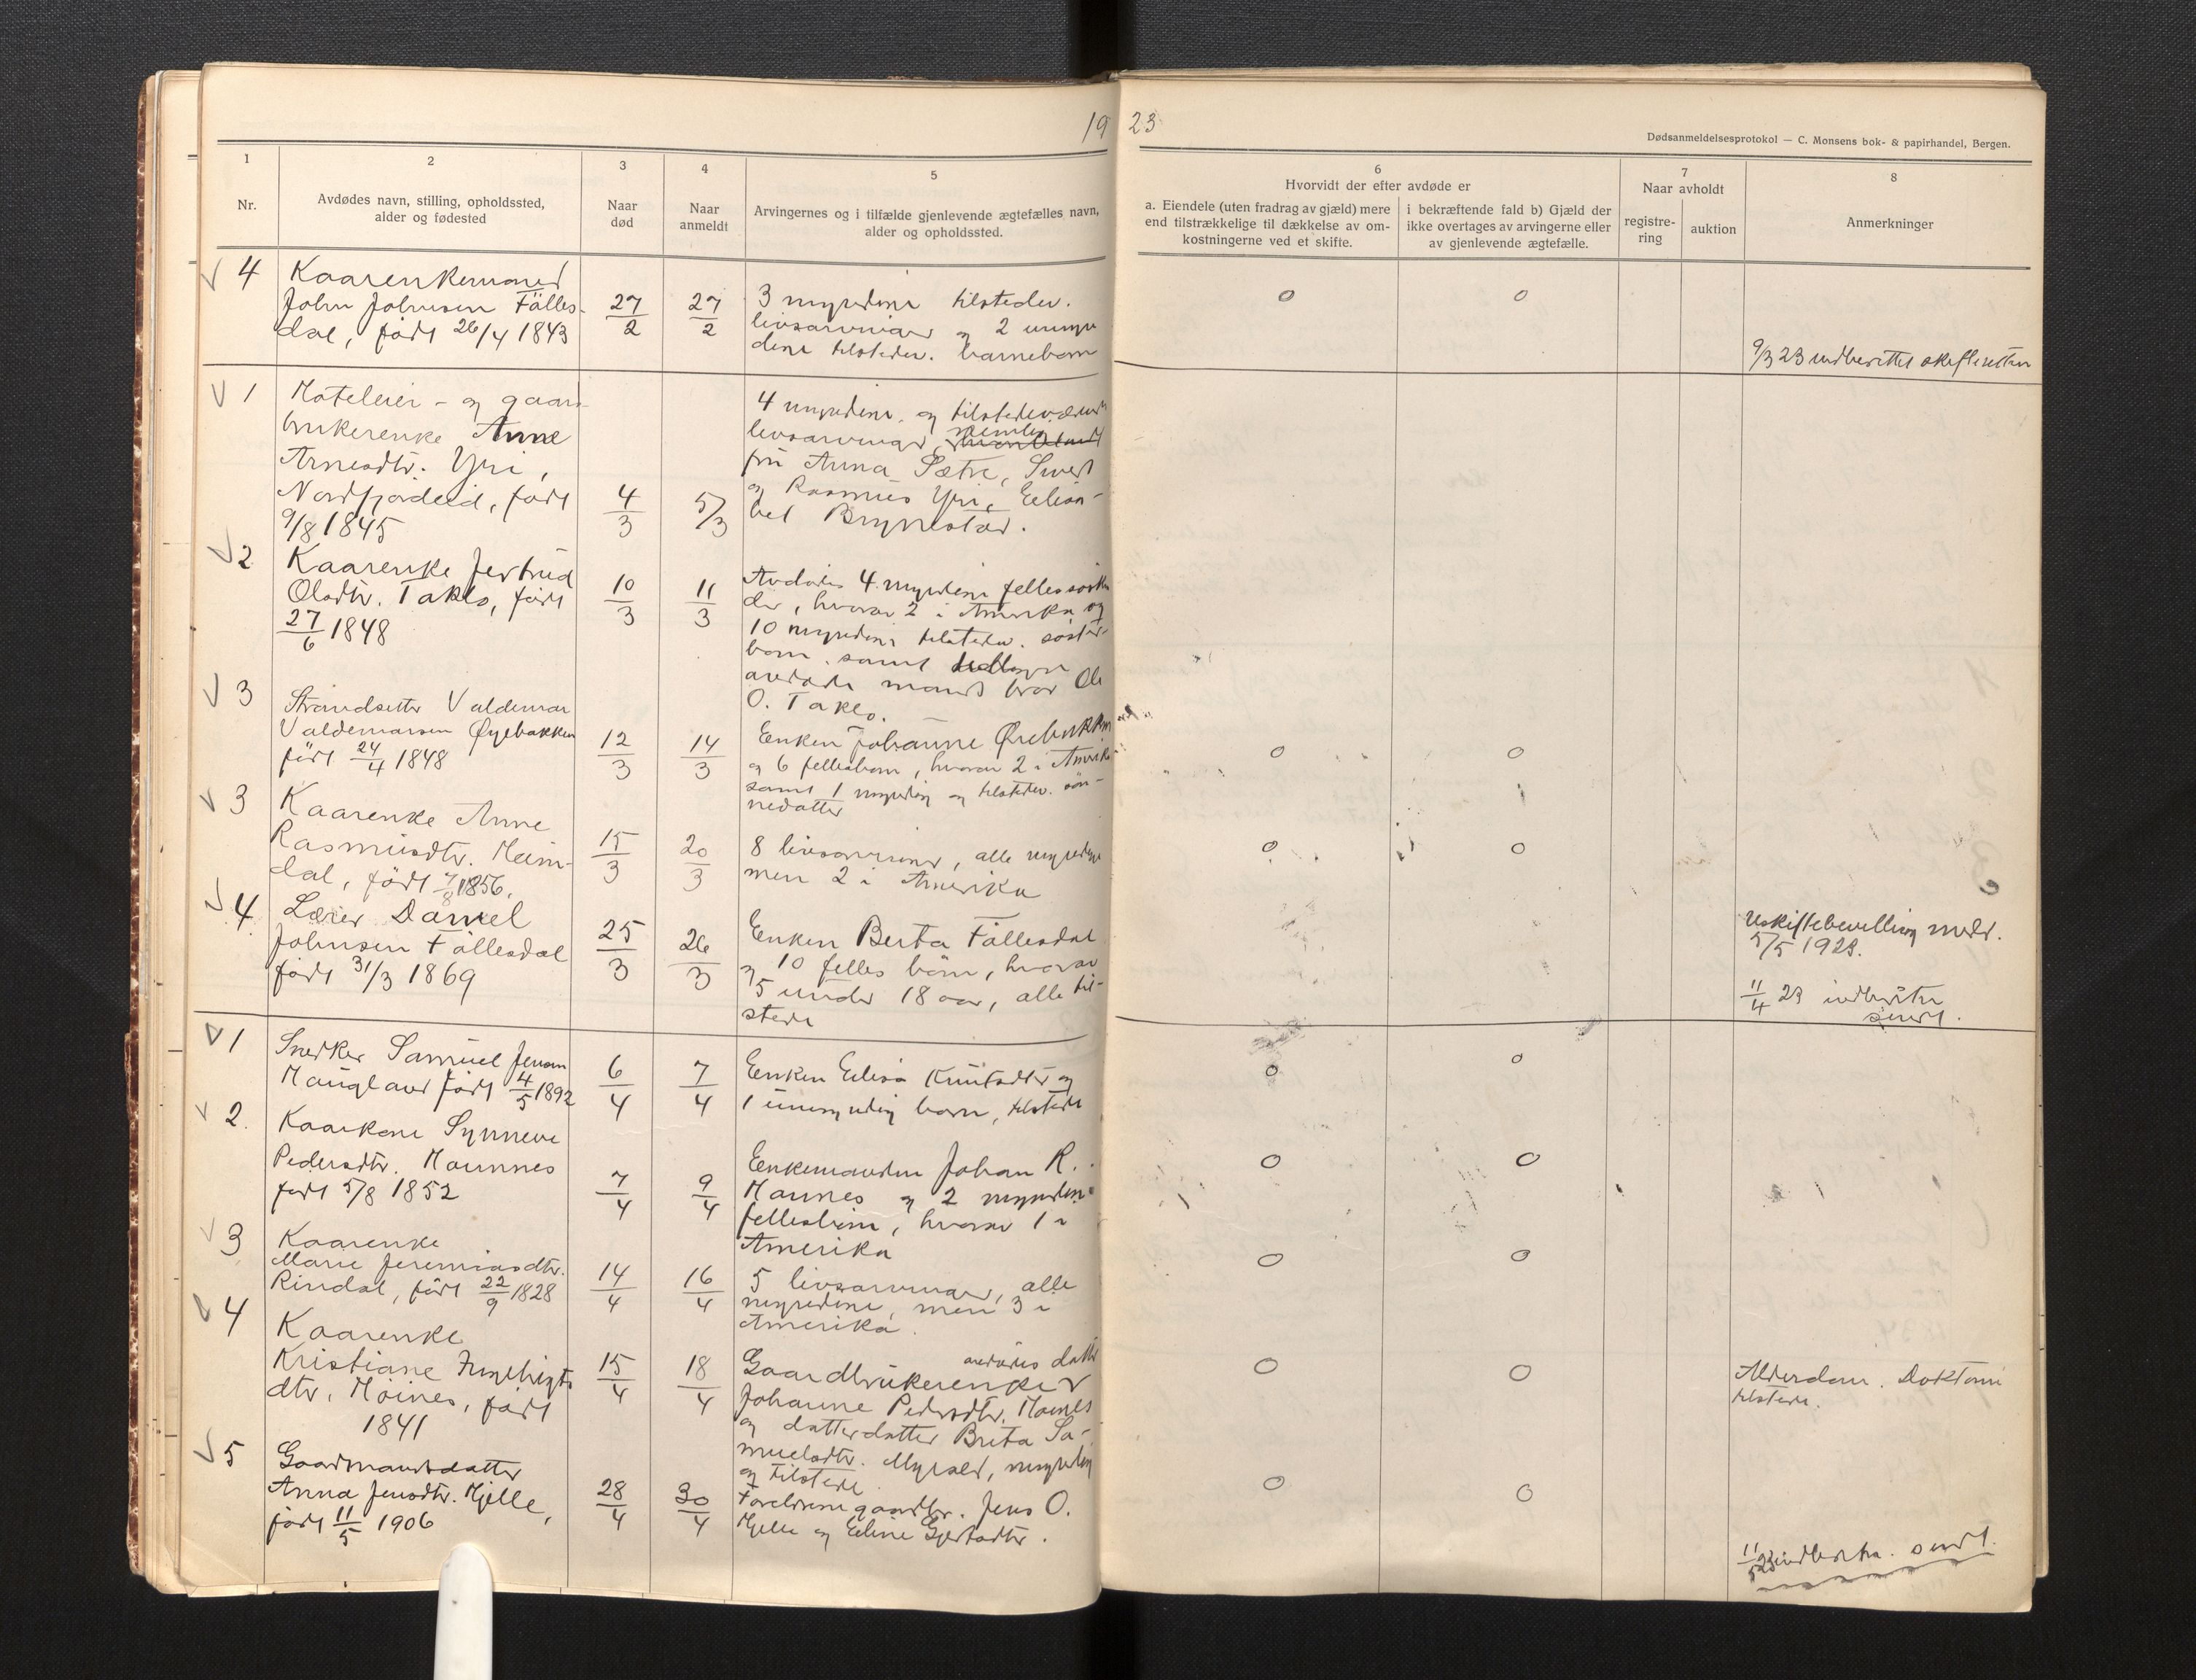 19 23
Dødsanmeldelsesprotokol — C. Monsens bok- & papirhandel, Bergen.
1
Nr.
2
Avdødes navn, stilling, opholdssted,
alder og fødested
3
Naar
død
4
Naar
anmeldt
5
Arvingernes og i tilfælde gjenlevende ægtefælles navn,
alder og opholdssted.
6
Hvorvidt der efter avdøde er
a. Eiendele (uten fradrag av gjæld) mere
end tilstrækkelige til dækkelse av om-
kostningerne ved et skifte.
i bekræftende fald b) Gjæld der
ikke overtages av arvingerne eller
av gjenlevende ægtefælle.
7
Naar avholdt
registre-
ring
auktion
8
Anmerkninger
4
Kaarenkemand
John Johnsen Fälles-
dal, født 26/4 1843
27/2
27/2
3 myndine tilstedev.
livsarvinger og 2 umyn
dine tilstedev. barnebarn
0
0
9/3 23 indberettet skifteretten
1
Hoteleier- og gaard
brukerenke Anne
Arnesdtr. Yri,
Nordfjordeid, født
9/8 1845
4/3
5/3
4 myndine og tilstedeværend
livsarvinger, nemlig
fru Anna Sætre, Sivert
og Rasmus Yri, Elisa-
bet Brynestad.
2
Kaarenke Jertrud
Olsdtr. Taklo, født
27/6 1848
10/3
11/3
Avdødes 4 myndine fellessøsken
der, hvorav 2 i Amerika og
10 myndine tilstedev. søster-
born samt
avdøde mands bror Ole
O. Taklo.
3
Strandsitter Valdemar
Valdemarsen Øyebakken
født 24/4 1848
12/3
14/3
Enken Johanne
og 6 fellesborn, hvorav 2 i Amerika
samt 1 myndig og tilstedev. søn-
nedatter
0
0
3
Kaarenke Anne
Rasmusdtr. Heim-
dal, født 7/8 1856.
15/3
20/3
8 livsarvinger, alle myndige
men 2 i Amerika
0
0
4
Lærer Daniel
Johnsen Fällesdal
født 31/3 1869
25/3
26/3
Enken Berta Fällesdal
og 10 felles børn, hvorav
5 under 18 aar, alle til-
stede
Uskiftebevilling medd.
5/5 1923.
11/4 23 indberetn
sendt.
1
Snedker Samuel Jensen
Haugland født 4/5 1892
6/4
7/4
Enken Elisa Knutsdtr og
1 umyndig barn, tilstede
0
0
2
Kaarkone Synneve
Pedersdtr. Maurnes
født 5/8 1852
7/4
9/4
Enkemanden Johan R.
Maunes og 2 myndine
fellesbørn, hvorav 1 i
Amerika
0
0
3
Kaarenke
Marie Jeremiasdtr.
Rindal, født 22/9 1828
14/4
16/4
5 livsarvinger, alle
myndine, men 3 i
Amerika.
0
0
4
Kaarenke
Kristiane
dtr. Moines, født
1841
15/4
18/4
avdødes datter
Gaardbrukerenke
Johanne Pedersdtr. Moines
og datterdatter Brita Sa-
muelsdtr. Myrold, myndig
og tilstede
0
0
Alderdom. Doktor
tilstede.
5
Gaardmandsdatter
Anna Jensdtr. Hjelle,
født 11/5 1906
28/4
30/4
Foreldrene gaardbr. Jens O.
Hjelle og Eline Gjertsdtr.
0
0
11/5 23 indberetn. sendt.